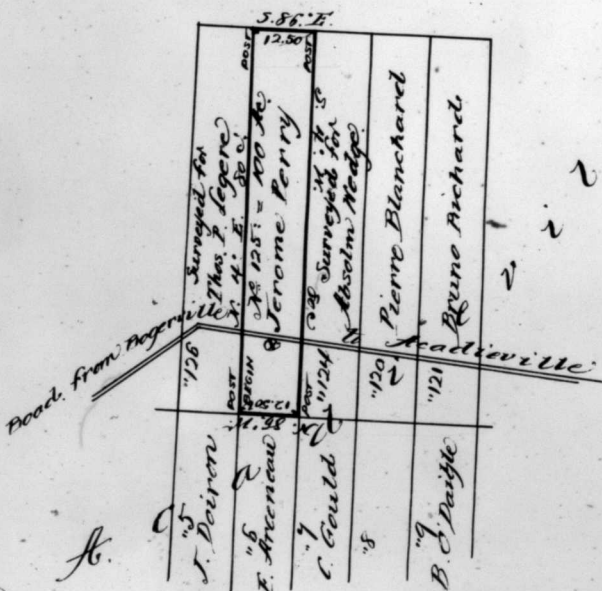 S. 86° E.
12.50
POST
POST
Surveyed for
Thos. P. Legere
N. 4° E. 80 c.
No 125 = 100 Ac
Jerome Perry
S. 4° W.
Surveyed for
Absolm Wedge
Pierre Blanchard
Bruno Richard
Road from Rogerville
to Acadieville
"126
"124
"120
"121
POST
BEGIN
12.50
POST
N. 86° W.
"5
J. Doiron
"6
F. Arceneau
"7
C. Gould
"8
"9
B. O'Daigle
A C a